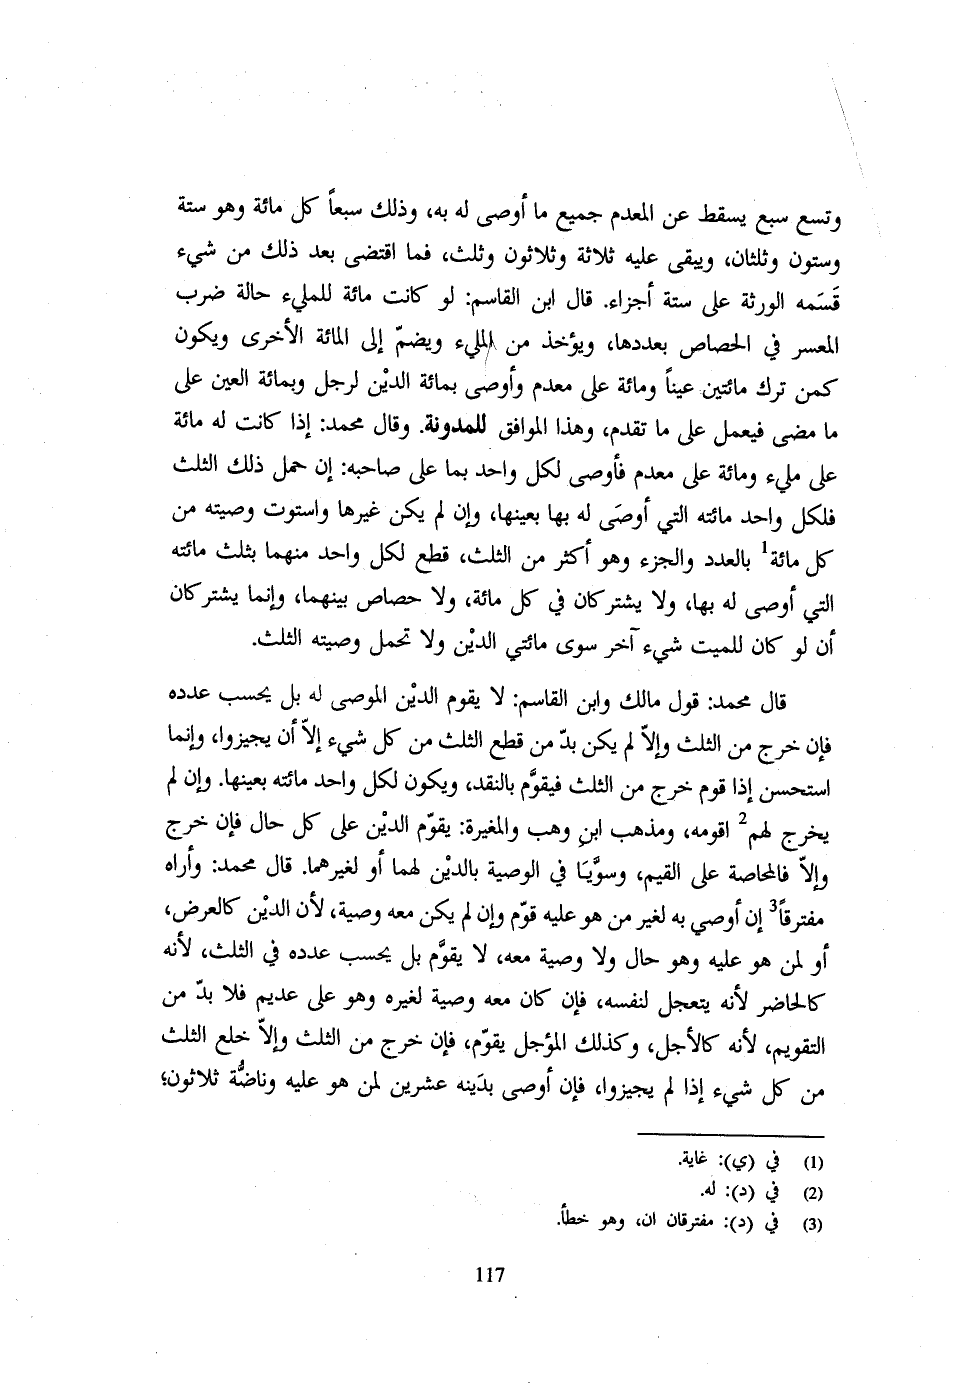 وتسع سبع يسقط عن المعدم جميع ما أوصى له به، وذلك سبعاً كل مائة وهو ستة
وستون وثلثان، ويبقى عليه ثلاثة وثلاثون وثلث، فما اقتضى بعد ذلك من شيء
قَسَمه الورثة على ستة أجزاء. قال ابن القاسم: لو كانت مائة للمليء حالة ضرب
المعسر في الحصاص بعددها، ويؤخذ من المليء ويضمّ إلى المائة الأخرى ويكون
كمن ترك مائتين عيناً ومائة على معدم وأوصى بمائة الديْن لرجل وبمائة العين على
ما مضى فيعمل على ما تقدم، وهذا الموافق للمدونة. وقال محمد: إذا كانت له مائة
على مليء ومائة على معدم فأوصى لكل واحد بما على صاحبه: إن حمل ذلك الثلث
فلكل واحد مائته التي أوصَى له بها بعينها، وإن لم يكن غيرها واستوت وصيته من
كل مائة1 بالعدد والجزء وهو أكثر من الثلث، قطع لكل واحد منهما بثلث مائته
التي أوصى له بها، ولا يشتركان في كل مائة، ولا حصاص بينهما، وإنما يشتركان
أن لو كان للميت شيء آخر سوى مائتي الديْن ولا تحمل وصيته الثلث.
قال محمد: قول مالك وابن القاسم: لا يقوم الديْن الموصى له بل يحسب عدده
فإن خرج من الثلث وإلاّ لم يكن بدّ من قطع الثلث من كل شيء إلاّ أن يجيزوا، وإنما
استحسن إذا قوم خرج من الثلث فيقوَّم بالنقد، ويكون لكل واحد مائته بعينها. وإن لم
يخرج لهم2 اقومه، ومذهب ابن وهب والمغيرة: يقوّم الديْن على كل حال فإن خرج
وإلاّ فالمحاصة على القيم، وسوَّيَا في الوصية بالديْن لهما أو لغيرهما. قال محمد: وأراه
مفترقاً3 إن أوصي به لغير من هو عليه قوّم وإن لم يكن معه وصية، لأن الديْن كالعرض،
أو لمن هو عليه وهو حال ولا وصية معه، لا يقوَّم بل يحسب عدده في الثلث، لأنه
كالحاضر لأنه يتعجل لنفسه، فإن كان معه وصية لغيره وهو على عديم فلا بدّ من
التقويم، لأنه كالأجل، وكذلك المؤجل يقوّم، فإن خرج من الثلث وإلاّ خلع الثلث
من كل شيء إذا لم يجيزوا، فإن أوصى بدَينه عشرين لمن هو عليه وناضُّة ثلاثون؛
(1) في (ي): غاية.
(2) في (د): له.
(3) في (د): مفترقان ان، وهو خطأ.
117